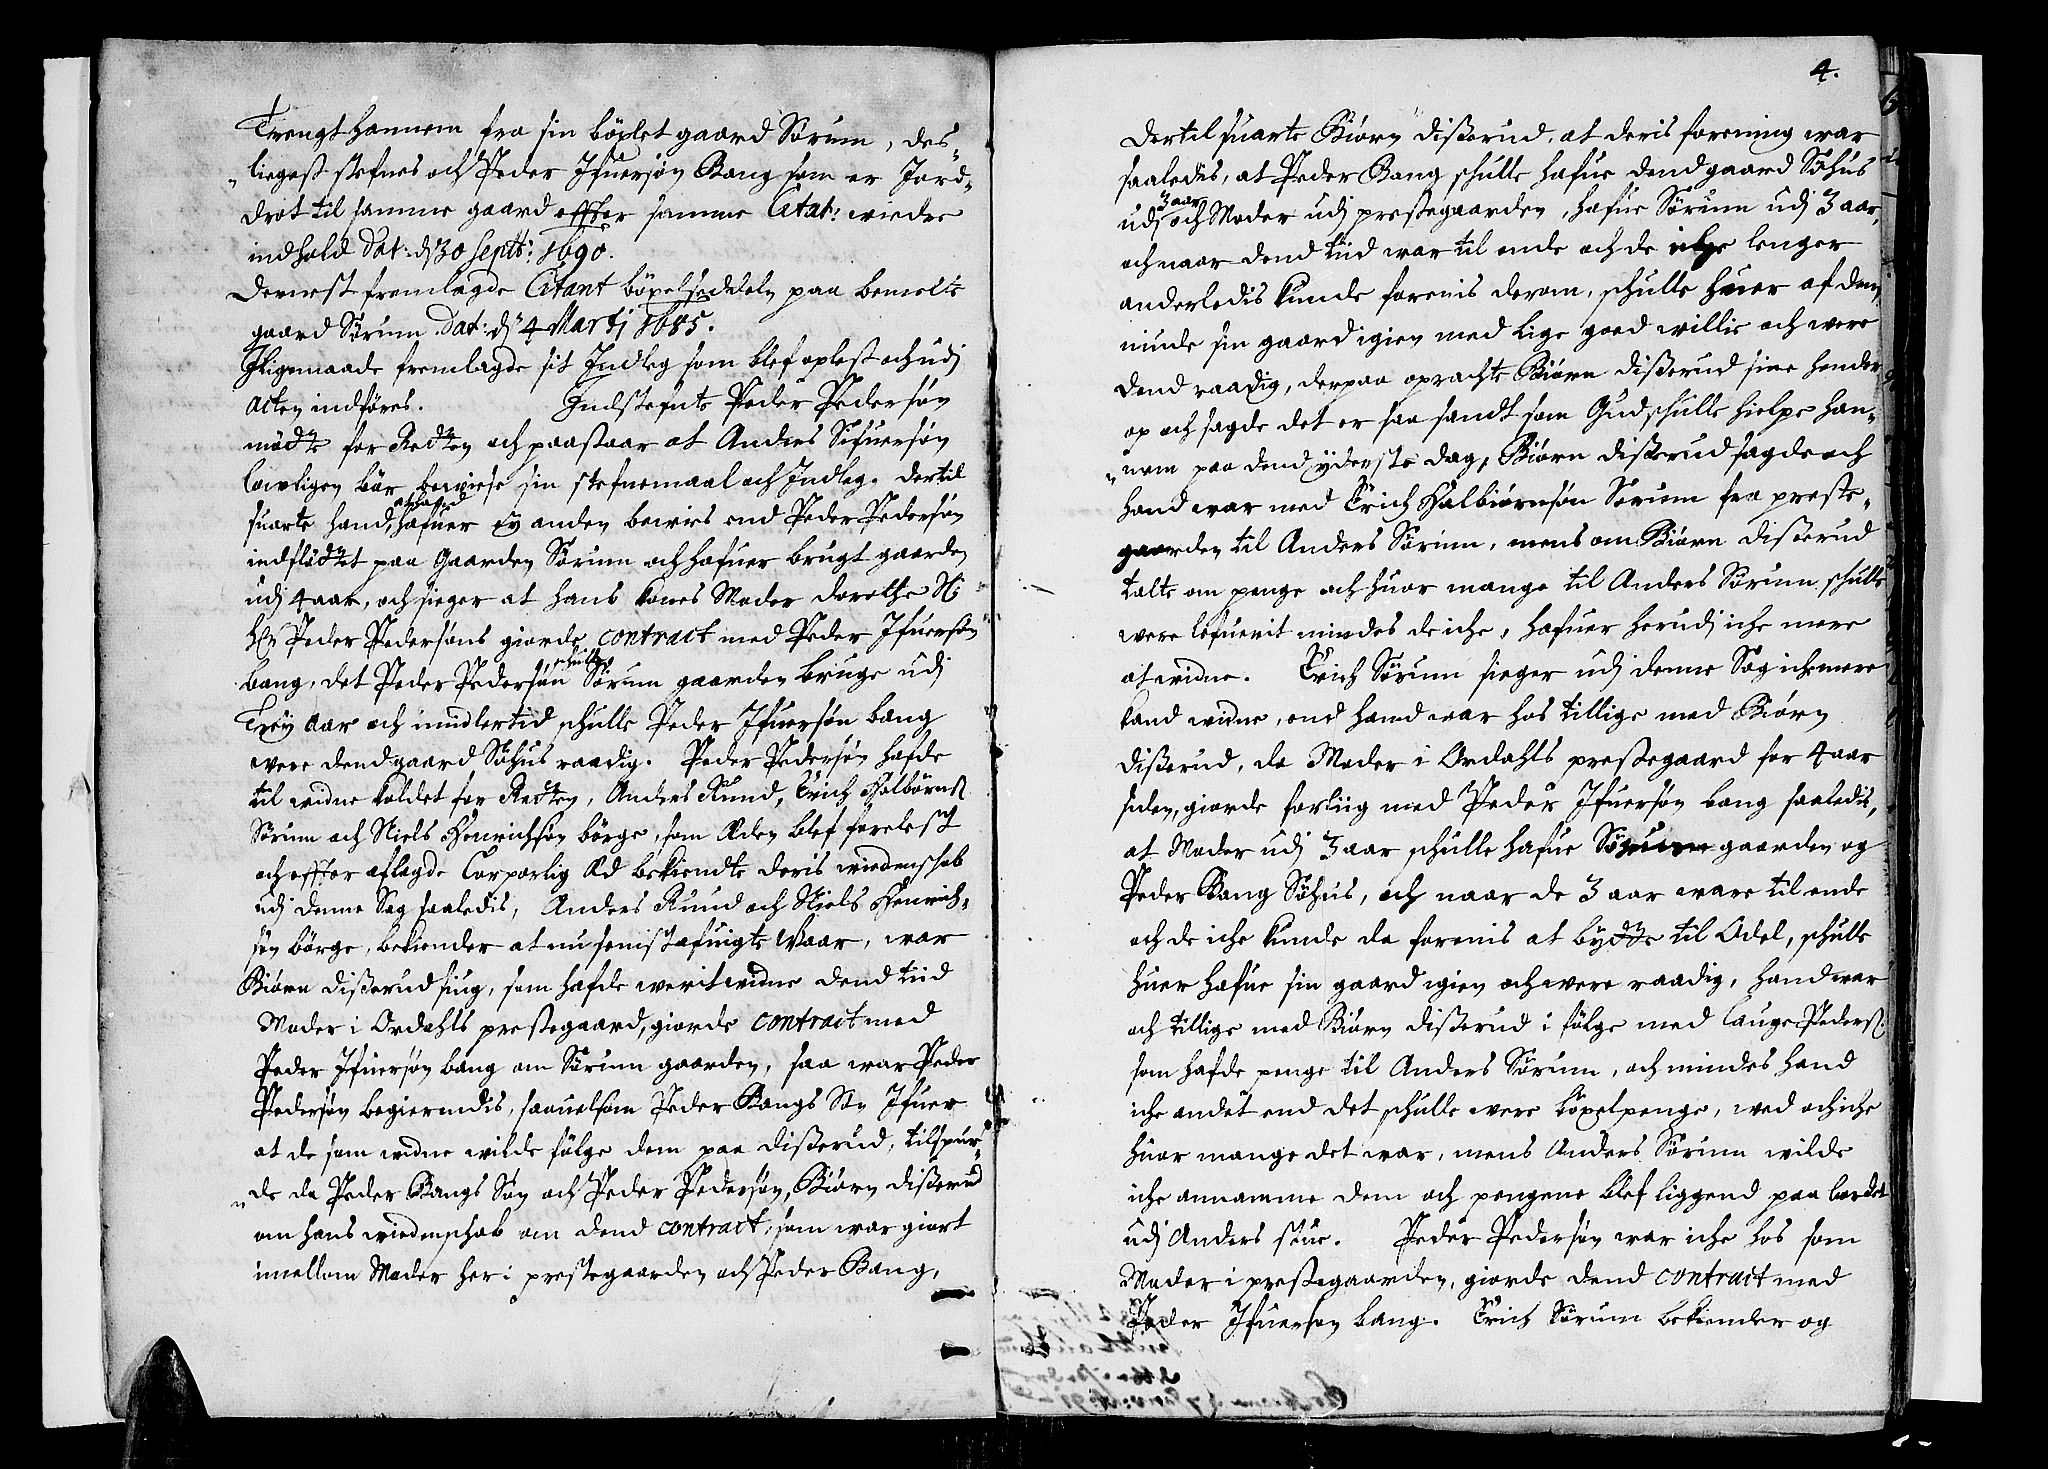 Trengt hannem fra sin böxlet gaard Sörum, des-
ligest stefnes och Peder Ifuersøn Bang som er Jord-
drot til samme gaard effter samme Citat: wiedre
indhold Dat: d: 30 Septb: 1690.
Dernest fremlagde Citant böxelseddeln paa bemelte
gaard Sörum Dat: d: 4 Martj 1685.
Iligemaade fremlagde sit Indleg som blef oplest och udj
Acten indføres. Indstefnte Peder Pedersøn
mødte for Retten och paastaar at Anders Sifuersøn
lowligen bör bewiese sin stefnemaal och Indleg. Dertil
suarte hand, at hand hafuer ey anden bewies end Peder Pedersøn
indflöttet paa Gaarden Sörum och hafuer brugt gaarden
udj 4 aar, och sieger at hans kones Moder Dorethe Sl:
Hr Peder Pedersøns giorde contract med Peder Ifuersøn
bang, det Peder Pedersøn schulle Sörum gaarden bruge udj
Trey aar och imidlertid schulle Peder Ifuersøn bang
were dend gaard Söhus raadig. Peder Pedersøn hafde
til widne kaldet for Retten, Anders Rund, Erich Halbörns:
Sörum och Niels Henrichsøn börge, som Eden blef forelest
och effter aflagde Corporlig Ed bekiendte deris wiedenschab
udj denne Sag saaledis, Anders Rund och Niels Henrich-
søn börge, bekiender at nu senist afuigte Waar, war
Biørn Disserud siug, som hafde werit widne dend tiid
Moder i Ordahls prestegaard, giorde contract med
Peder Ifuersøn bang om Sörum gaarden, saa war Peder
Pedersøn begierendis, saauelsom Peder Bangs Søn Ifuer
at de som widne wilde fölge dem paa Disserud, tilspur-
de da Peder Bangs Søn och Peder Pedersøn, Biørn Disserud
om hans wiedenschab om dend contract, som war giort
imellom Moder her i prestegaarden och Peder Bang,
4.
Dertil suarte Biørn Disserud, at deris forening war
saaledis, at Peder Bang schulle hafue dend gaard Söhus
udj 3 aar och Moder udj prestegaarden, hafue Sörum udj 3 aar,
och naar dend tiid war til ende och de iche lenger
anderledis kunde forenis derom, schulle huer af dem
niude sin gaard igien med lige goed willie och were
dend raadig, derpaa oprachte Biørn Disserud sine hender
op och sagde det er saa sandt som Gud schulle hielpe han-
nem paa dend yderste dag, Biørn Disserud sagde och
hand war med Erich Halbiørnsøn Sorum fra preste-
gaarden til Anders Sörum, mens om Biørn Disserud
talte om penge och huor mange til Anders Sörum schulle
were lefuerit mindes de iche, hafuer herudj iche mere
at widne. Erich Sörum sieger udj denne Sag iche mere
kand widne, end hand war hos tillige med Biørn
Disserud, da Moder i Ordahls prestegaard for 4 aar
siden, giorde forliig med Peder Ifuersøn bang saaledis,
at Moder udj 3 aar schulle hafue Sörum gaarden og
Peder Bang Söhus, och naar de 3 aar ware til ende
och de iche kunde da forenis at bytte til Odel, schulle
huer hafue sin gaard igien och were raadig, hand war
och tillige med Biørn Disserud i fölge med Lauge Peders:
som hafde penge til Anders Sörum, och mindes hand
iche andet end det schulle were böxelpenge, wed och iche
huor mange det war, mens Anders Sörum wilde
iche annamme dem och pengene blef liggend paa bordet
udj Anders stue. Peder Pedersøn war iche hos som
Moder i prestegaarden, giorde dend contract med
Peder Ifuersøn bang. Erich Sörum bekiender og